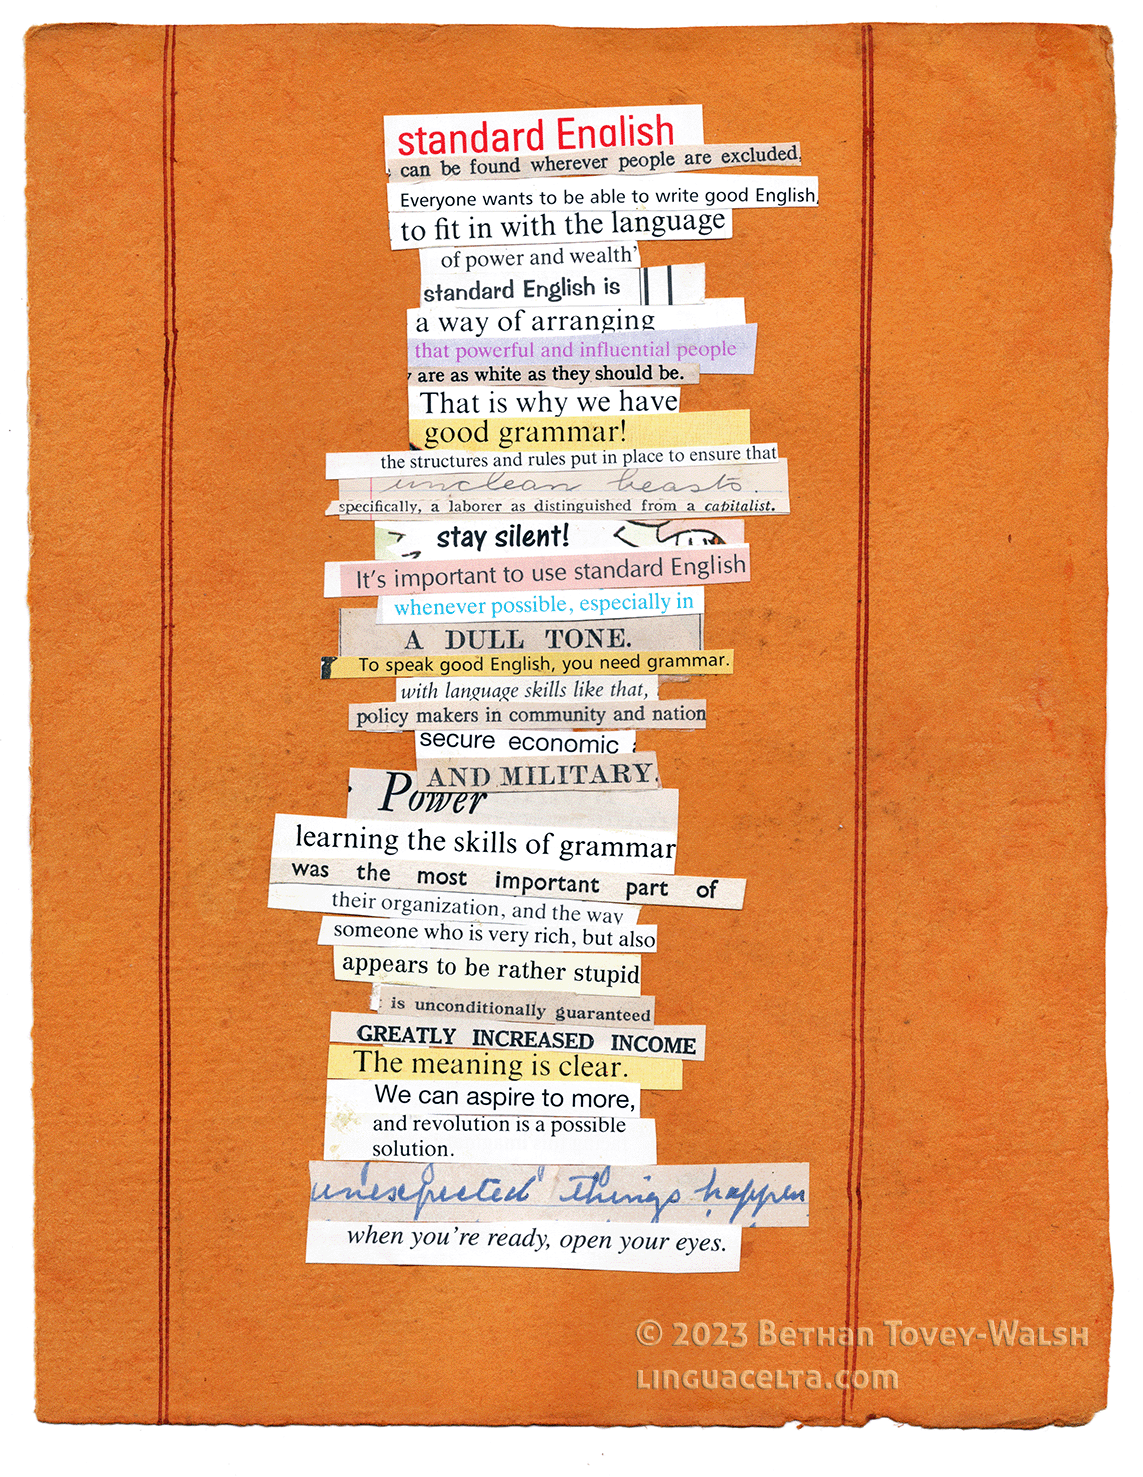 standard English
can be found wherever people are excluded.
Everyone wants to be able to write good English,
to fit in with the language
of power and wealth’
standard English is
a way of arranging
that powerful and influential people
are as white as they should be.
That is why we have
good grammar!
the structures and rules put in place to ensure that
unclean beasts.
specifically, a laborer as distinguished from a capitalist.
stay silent!
It's important to use standard English
whenever possible, especially in
A DULL TONE.
To speak good English, you need grammar.
with language skills like that,
policy makers in community and nation
secure economic
AND MILITARY.
Power
learning the skills of grammar
was the most important part of
their organization, and the way
someone who is very rich, but also
appears to be rather stupid
is unconditionally guaranteed
GREATLY INCREASED INCOME
The meaning is clear.
We can aspire to more,
and revolution is a possible
solution.
unexpected things happen
when you're ready, open your eyes.
© 2023 Bethan Tovey-Walsh
linguacelta.com